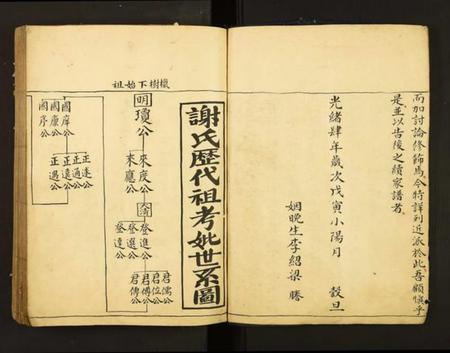 而加討論修飾焉今特詳列近派於此吾願慎乎
是並以告後之續家譜者
光緒肆年歲次戊寅小陽月 穀旦
姻晚生李紹梁 謄
謝氏歷代祖考妣世系圖
樹下始祖
明
瓊公
來度公
來應公
大清
登進公
登選公
登達公
君儒公
君位公
君傅公
君傳公
國庠公
國序公
正達公
正通公
正遇公